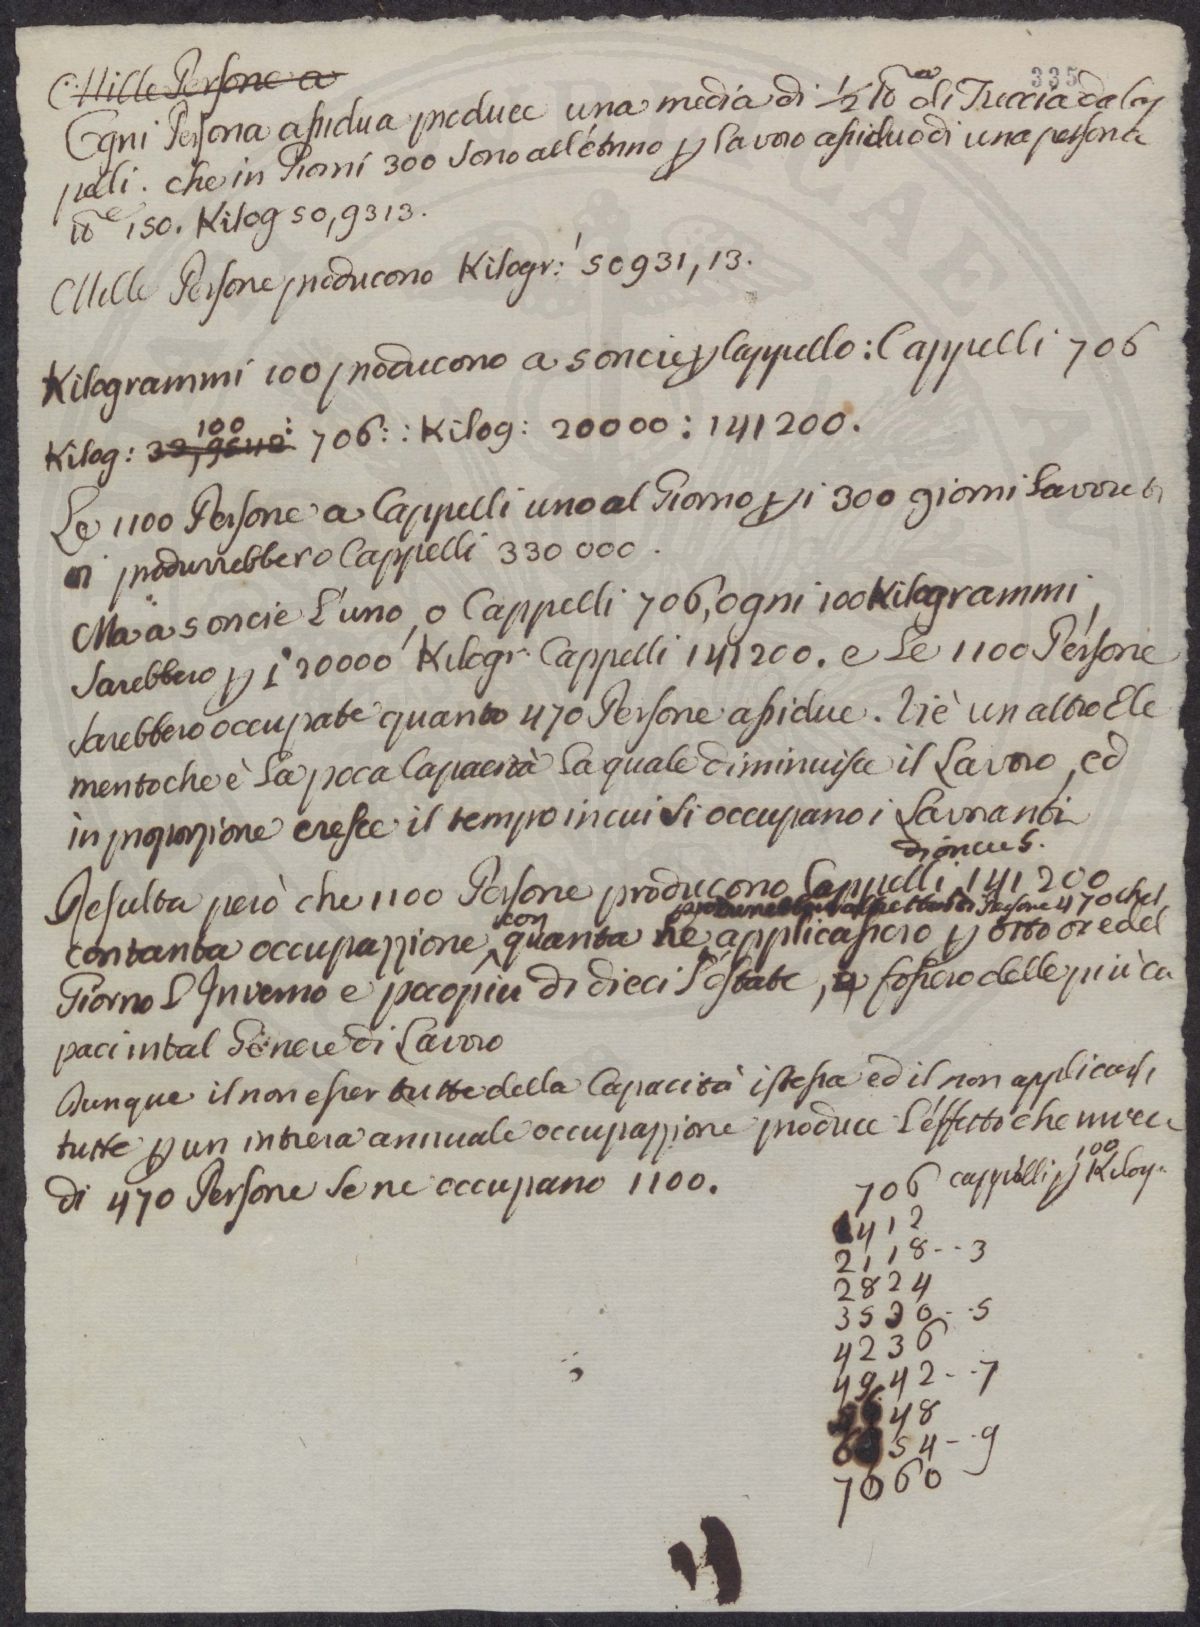 Mille Persone a
335
Ogni Persona assidua produce una media di ½ lb.a di Treccia da Cap
pelli. che in Giorni 300 sono all'Anno p lavoro assiduo di una persona
lb.e 150. Kilog 50,9313.
Mille Persone producono Kilogr: 50931,13.
Kilogrammi 100 producono a 5 oncie p Cappello: Cappelli 706
100
Kilog: 33,9542: 706:: Kilog: 20000: 141200.
Le 1100 Persone a Cappelli uno al Giorno p i 300 giorni Lavorati
vi produrrebbero Cappelli 330000.
Ma a 5 oncie l'uno, o Cappelli 706, ogni 100 Kilogrammi,
sarebbero p i 20000 Kilogr. Cappelli 141200. e Le 1100 Persone
sarebbero occupate quanto 470 Persone assidue. Vi è un altro Ele
mento che è la poca Capacità la quale diminuisce il Lavoro, ed
in proporzione cresce il tempo in cui si occupano i Lavoranti
di oncie 5.
Resulta però che 1100 Persone producono Cappelli 141200
Persone 470 che
contanta occupazione, con quanta ne applicassero p otto ore del
Giorno L'Inverno e poco più di dieci l'Estate, e fossero delle più ca
paci in tal Genere di Lavoro
Dunque il non esser tutte della Capacità istessa ed il non applicarsi
tutte p un intiera annuale occupazione produce l'effetto che invece
di 470 Persone se ne occupano 1100.
706 cappelli p 100 Kilog.
1412
2118--3
2824
3530--5
4236
4942--7
5648
6354--9
7060